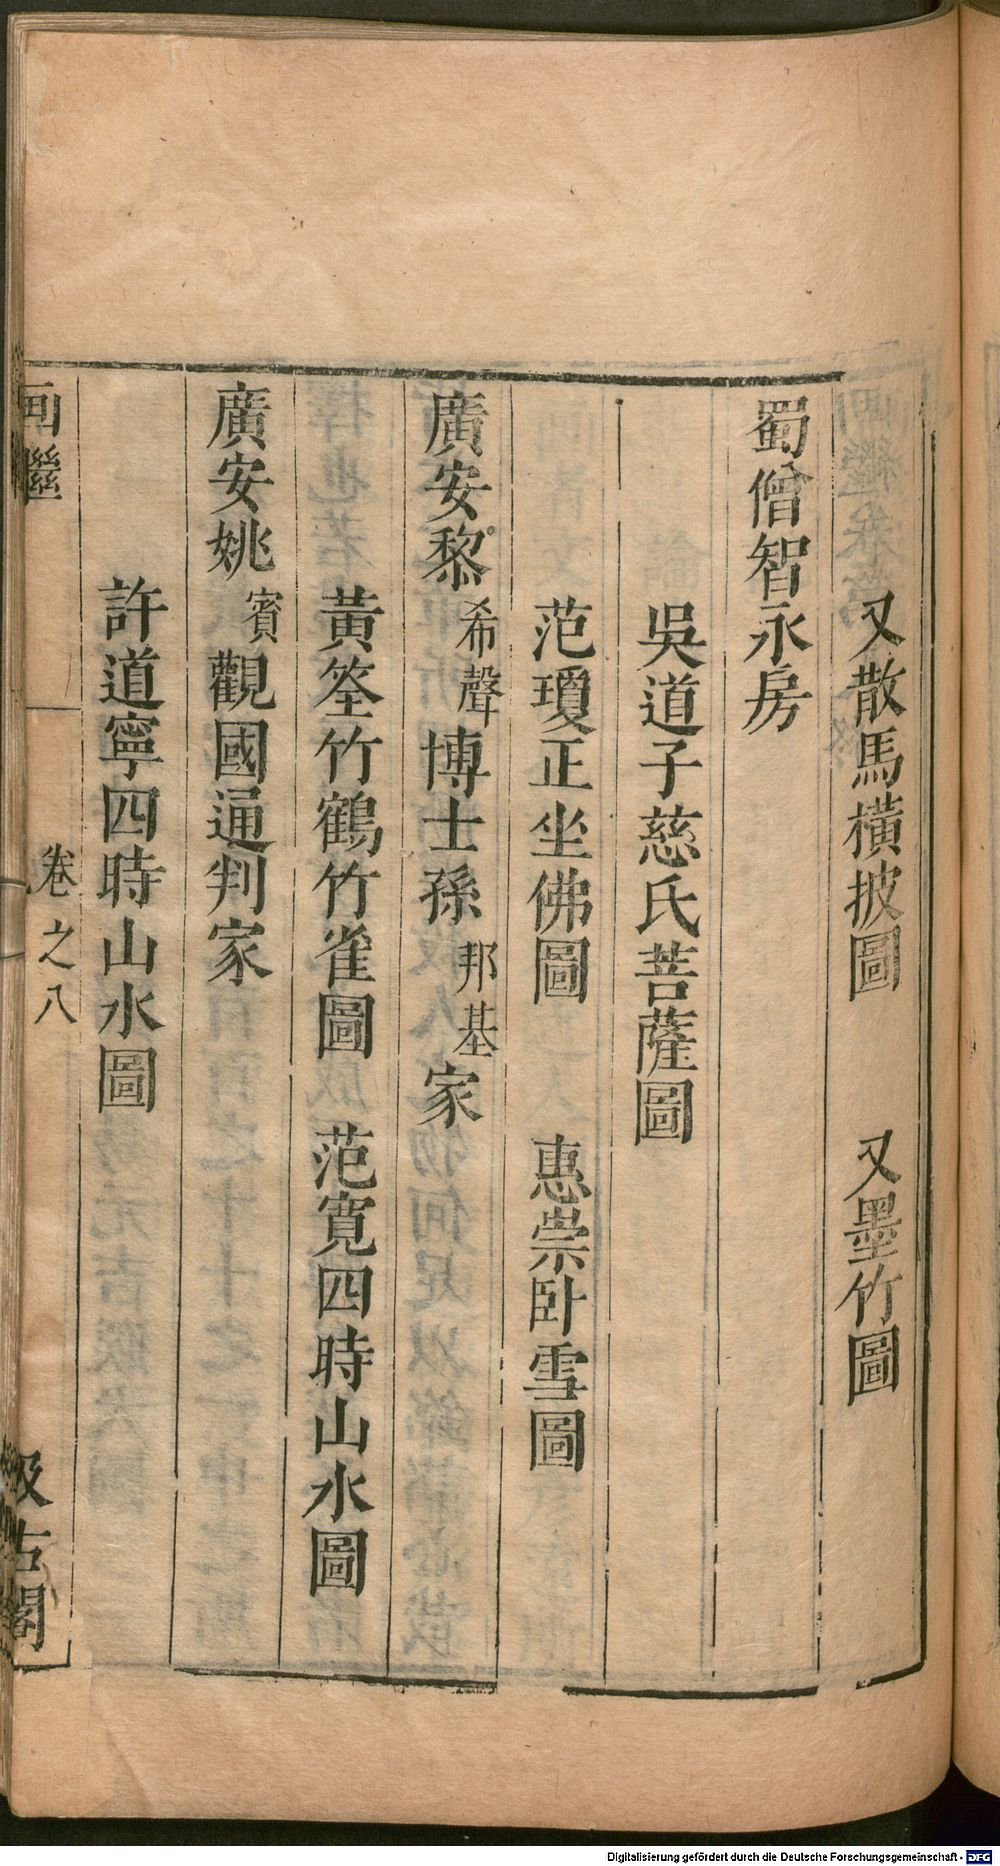 又散馬橫披圖　又墨竹圖
蜀僧智永房
吳道子慈氏菩薩圖
范瓊正坐佛圖　惠崇卧雪圖
廣安黎希聲博士孫邦基家
黃筌竹鶴竹雀圖　范寬四時山水圖
廣安姚賓觀國通判家
許道寧四時山水圖
畫繼　卷之八　汲古閣
Digitalisierung gefördert durch die Deutsche Forschungsgemeinschaft - DFG